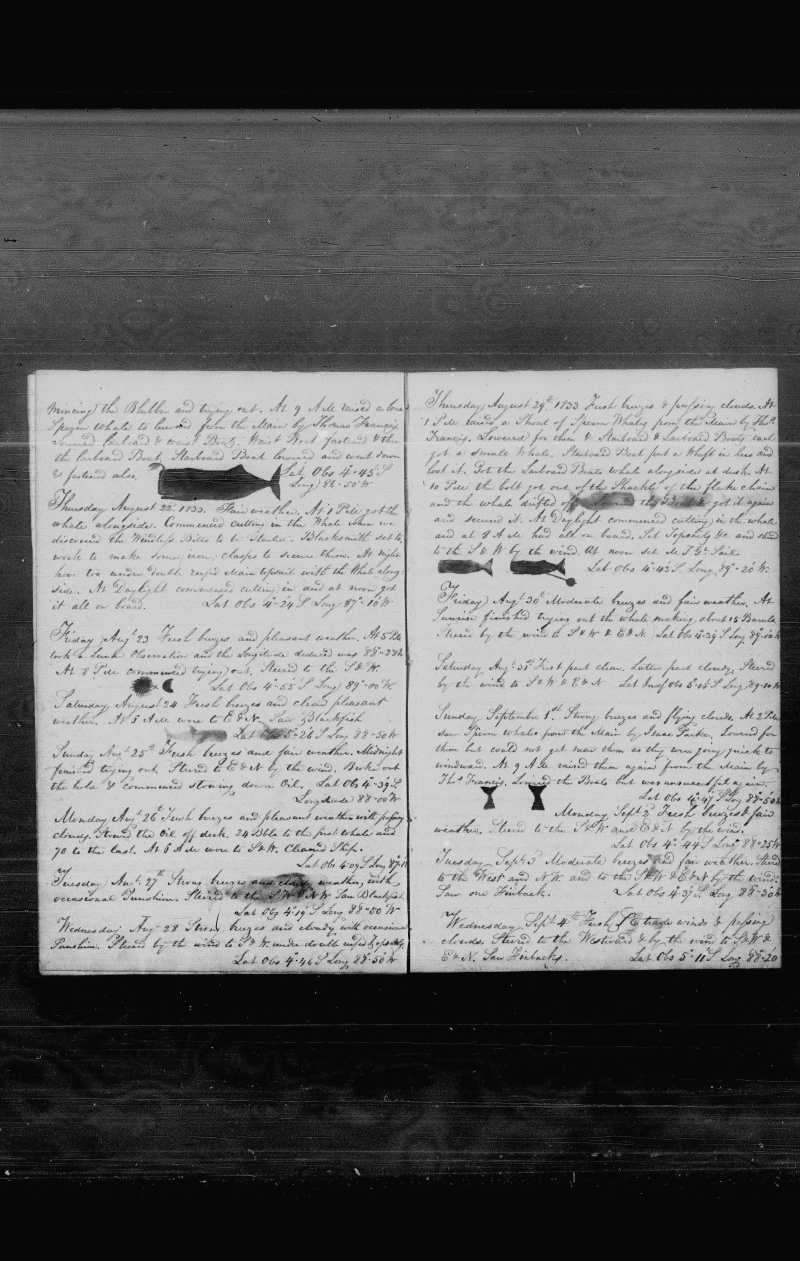 mincing the Blubber and trying out. At 9 AM raised a lone
Sperm Whale to leeward from the Main by Thomas Francis
Lowered Larboard & waist Boats. Waist Boat fastened & then
the Larboard Boat. Starboard Boat lowered and went down
& fastened also. Lat Obs 4-45 S
Long 86-50 W
Thursday August 22. 1833. Fair weather. At 1 PM got the
whale alongside. Commenced cutting in the Whale when we
discovered the Windlass Bitts to be started. Blacksmith set to
work to make some iron clasps to secure them. At night
hove too under double reef'd Main topsail with the Whale along-
side. At Daylight commenced cutting in and at noon got
it all on board. Lat Obs 4-24 S Long 87-10 W
Friday Augt 23 Fresh breezes and pleasant weather. At 5 PM
took a Lunar Observation and the Longitude deduced was 88-28
At 8 PM commenced trying out. Steered to the S & W.
Lat Obs 4-55 S Long 89-00 W
Saturday August 24 Fresh breezes and clear pleasant
weather. At 5 AM wore to E & N. Saw Blackfish
Lat Obs 5-26 S Long 88-50 W
Sunday Augt 25th Fresh breezes and fair weather. Midnight
finished trying out. Steered to E & N by the wind. Broke out
the hole & commenced stowing down Oil. Lat Obs 4-39 S.
Longitude 88-00 W
Monday Augt 26th Fresh breezes and pleasant weather with passing
clouds. Stowed the Oil off deck. 24 Bbls to the first whale and
70 to the last. At 6 AM wore to S & W. Cleaned Ship.
Lat Obs 4-09 S Long 87-
Tuesday Augt 27th Strong breezes and cloudy weather, with
occasional Sunshine. Steered to the S W & N W Saw Blackfish.
Lat Obs 4-19 S Long 88-00 W
Wednesday Augt 28 Strong breezes and cloudy with occasional
Sunshine. Steered by the wind to S & W under double reef'd Topsails.
Lat Obs 4-46 S Long 88-50 W
Thursday August 29th 1833 Fresh breezes & passing clouds. At
1 PM raised a Shoal of Sperm Whales from the Main by Thos
Francis. Lowered for them & Starboard & Larboard Boats each
got a small whale. Starboard Boat put a Whift in hers and
lost it. Got the Larboard Boats whale alongside at dusk. At
10 PM the bolt got out of the Shackle of the fluke chain
and the whale drifted off Lowered the Boat & got it again
and secured it. At Daylight commenced cutting in the whale
and at 8 AM had all on board. Set Topsails &c and stood
to the S & W by the wind. At noon set M T Gt Sail
Lat Obs 4-43 S Long 89-20 W.
Friday Augt 30th Moderate breezes and fair weather. At
Sunrise finished trying out the whale making about 15 Barrels
Steered by the wind to S & W & E & N. Lat Obs 4-39 S Long 89-10 W
Saturday Augt 31st First part clear. Latter part cloudy. Steered
by the wind to S & W & E & N Lat Obs 5-05 S Long 89-10 W
Sunday September 1st Strong breezes and flying clouds. At 2 PM
saw Sperm whales from the Main by Isaac Parker. Lowered for
them but could not get near them as they were going quick to
windward. At 9 AM raised them again from the Main by
Thos Francis. Lowered the Boats but was unsuccessful again.
Lat Obs 4-47 S Long 88-50 W
Monday Septr 2d Fresh breezes & fair
weather. Steered to the S & W and E & N by the wind.
Lat Obs 4-44 S Long 88-25 W
Tuesday Septr 3d Moderate breezes and fair weather. Steered
to the West and N W and to the S & W & E & N by the wind.
Saw one Finback. Lat Obs 4-37 S Long 88-30 W
Wednesday Septr 4th Fresh S E trade winds & passing
clouds. Steered to the Westward & by the wind to S & W &
E & N. Saw Finbacks. Lat Obs 5-11 S Long 88-20